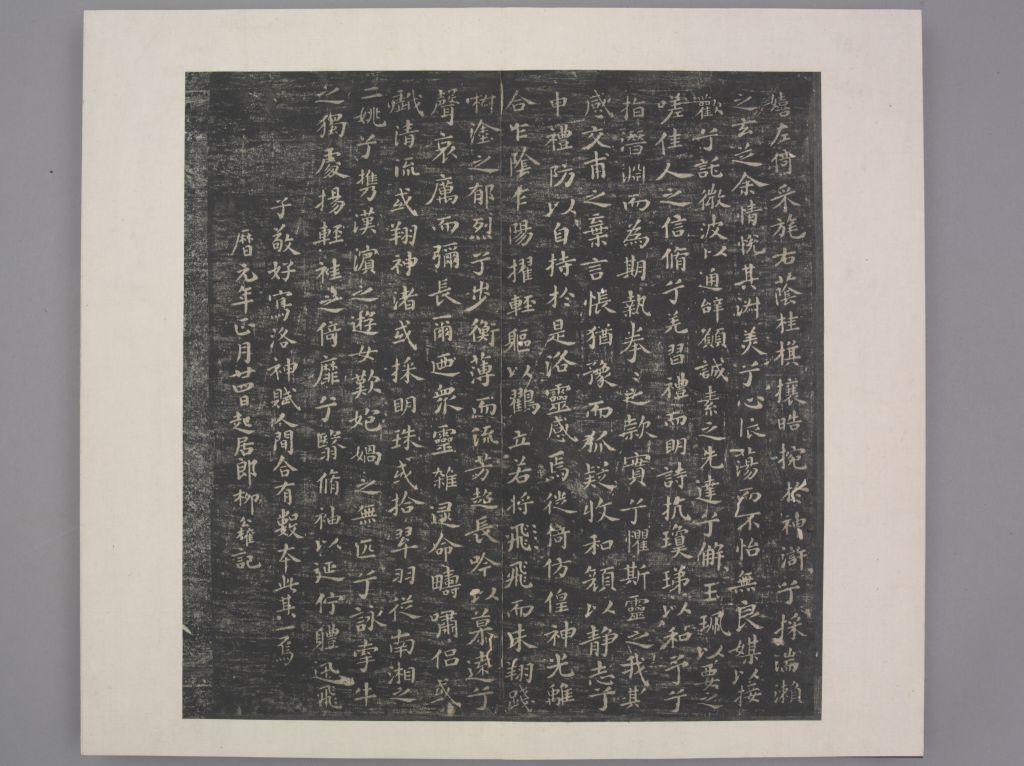 嬉左倚采旄右蔭桂棋攘皓捥於神滸兮採湍瀨
之玄芝余情悅其淑美兮心振蕩而不怡無良媒以接
歡兮託微波以通辝願誠素之先達兮解玉珮以要之
嗟佳人之信脩兮羌習禮而明詩抗瓊珶以和予兮
指潛淵而為期執拳〻之款實兮懼斯靈之我其
感交甫之棄言悵猶豫而狐疑收和顏以靜志兮
申禮防以自持於是洛靈感焉徙倚仿偟神光離
合乍陰乍陽擢輕軀以鶴立若將飛飛而未翔踐
椒塗之郁烈兮步衡薄而流芳超長吟以慕遠兮
聲哀厲而彌長爾迺眾靈雜遝命疇嘯侶或
戲清流或翔神渚或採明珠或拾翠羽從南湘之
二姚兮攜漢濱之遊女歎媲媧之無匹兮詠牽牛
之獨處揚輕袿之倚靡兮翳脩袖以延佇體迅飛
子敬好寫洛神賦人間合有數本此其一焉
曆元年正月廿四日起居郎柳 記